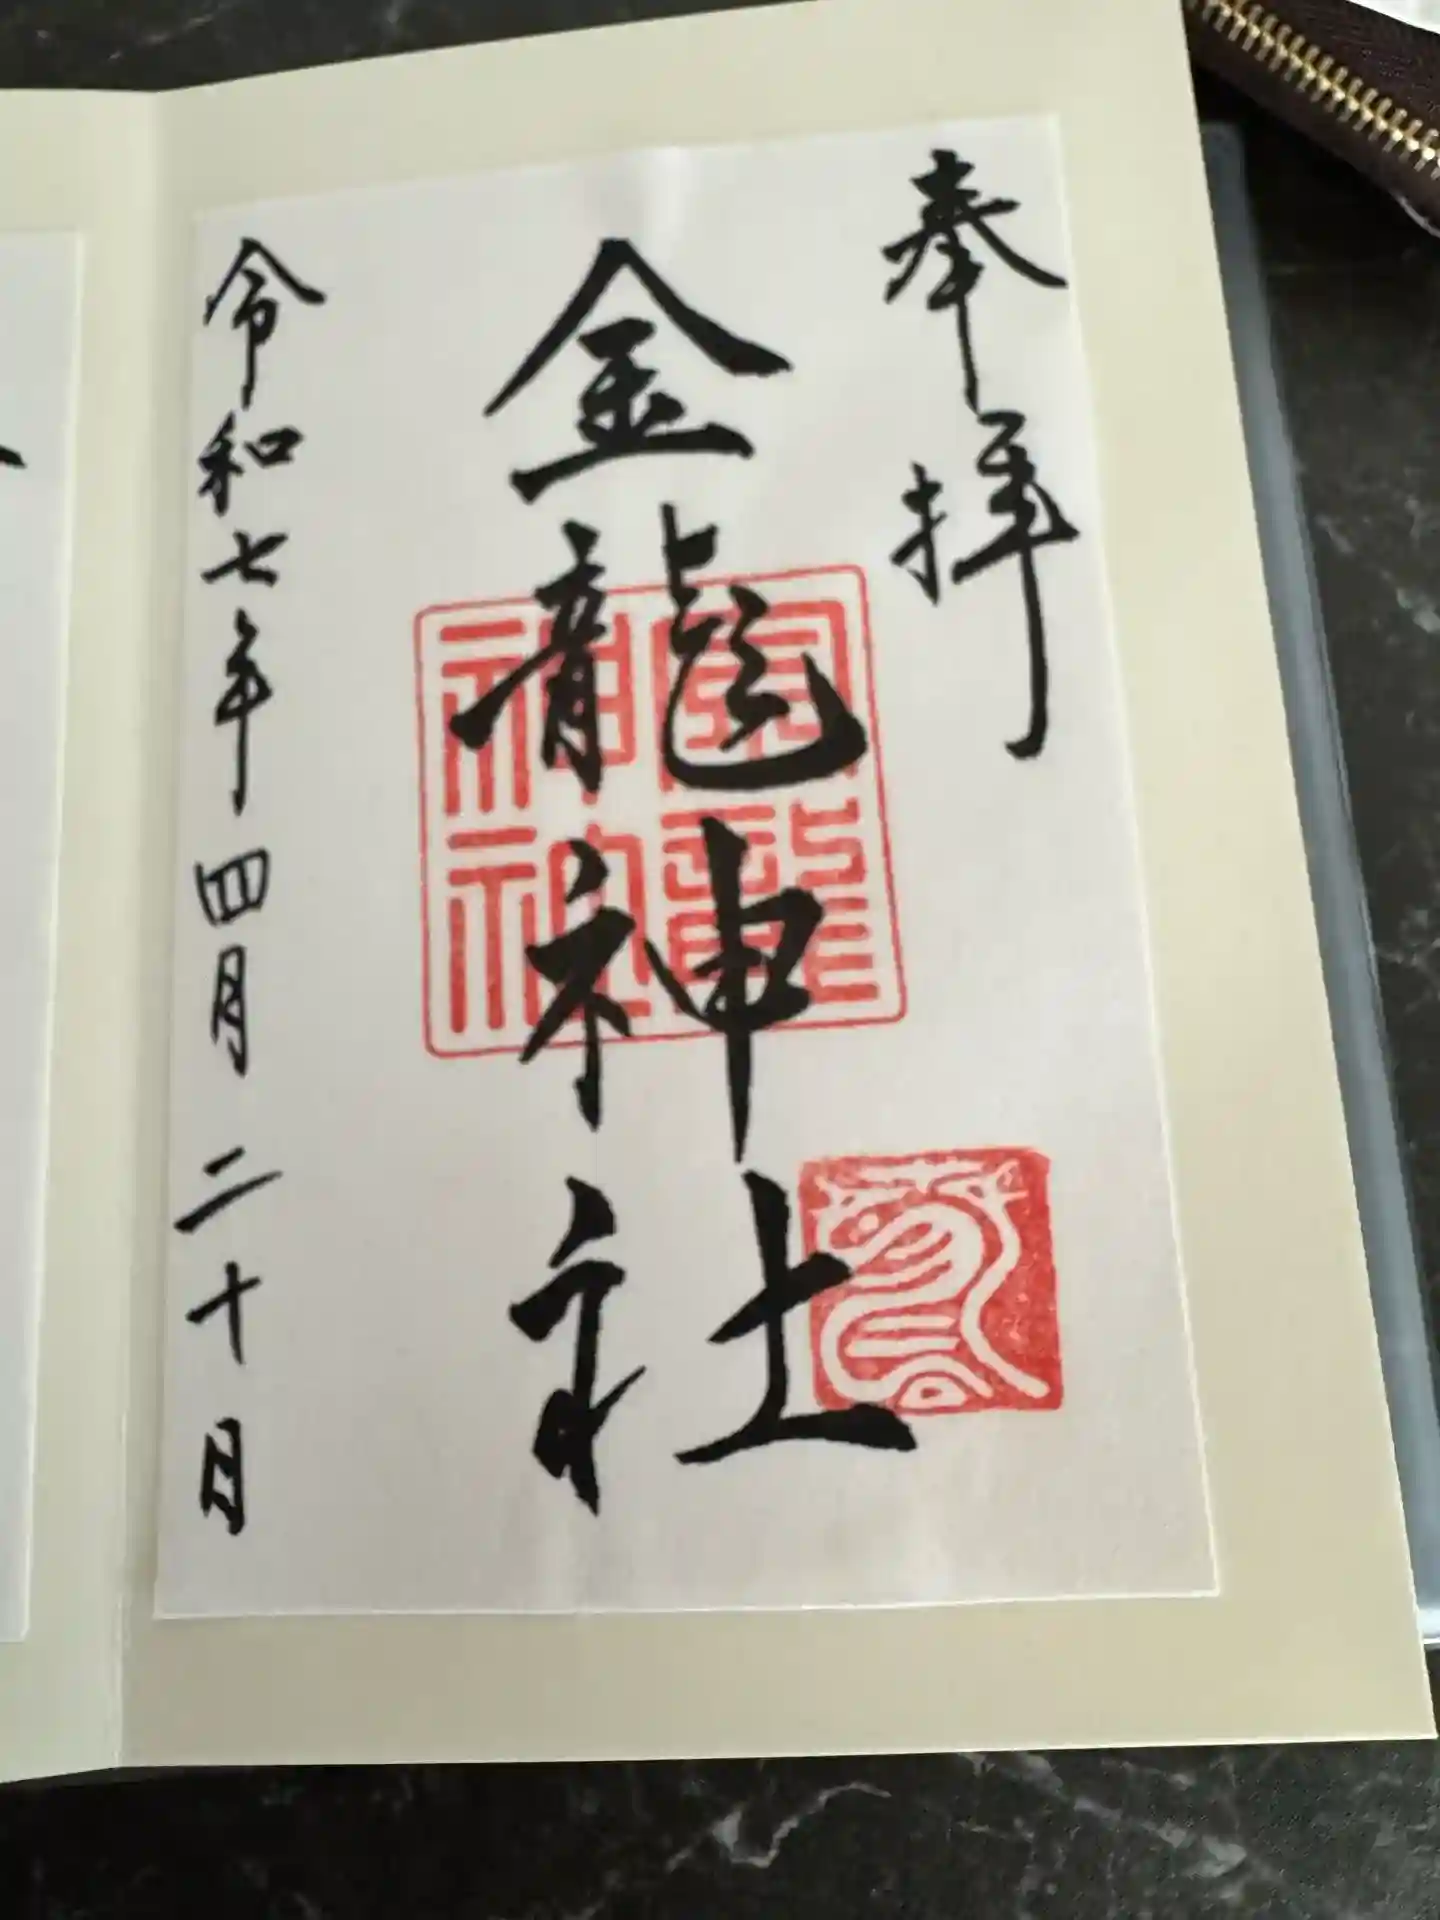 奉拝
金龍神社
金龍神社
令和七年四月二十日